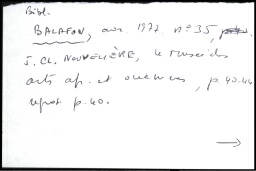 Bibl.
BALAFON, avr. 1977 n° 35,
J. CL. NOUVELIÈRE, le musée des
arts af. et océaniens, p. 40-44
repr. p. 40.